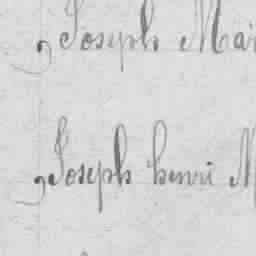 Joseph Mar
Joseph henri M